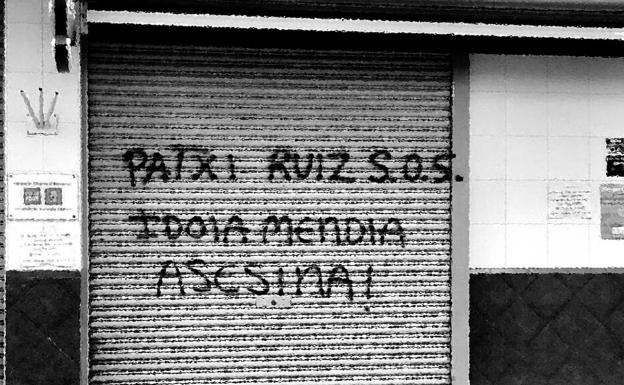 PATXI RUIZ S.O.S.
IDOIA MENDIA
ASESINA!